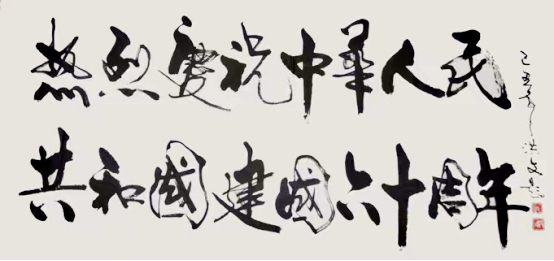 热烈庆祝中华人民
共和国建国六十周年